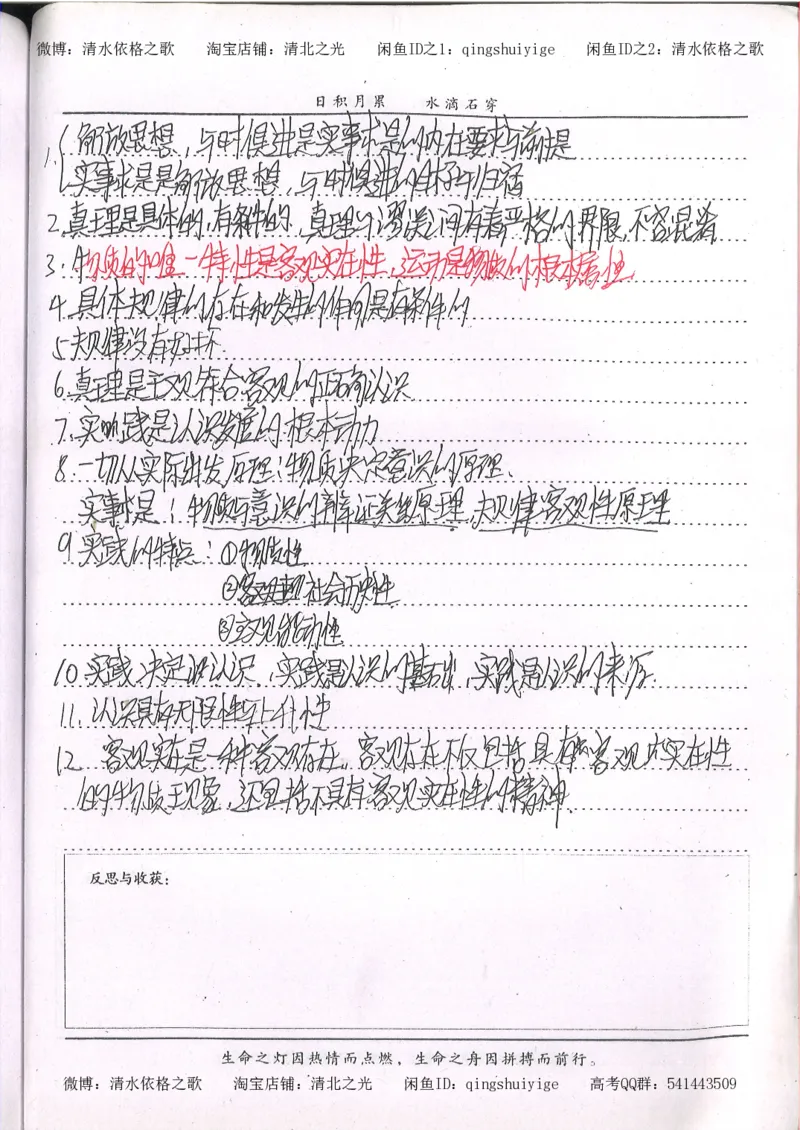 微博：清水依格之歌 淘宝店铺：清北之光 闲鱼ID之1：qingshuiyige 闲鱼ID之2：清水依格之歌
日积月累 水滴石穿
1. 解放思想，与时俱进是实事求是的内在要求与前提
实事求是是解放思想，与时俱进的目的与归宿
2. 真理是具体的，有条件的，真理与谬误之间有着严格的界限，不容混淆
3. 物质的唯一特性是客观实在性，运动是物质的根本属性
4. 具体规律的存在和发生的作用是有条件的
5. 规律没有好坏
6. 真理是主观符合客观的正确认识
7. 实践是认识发展的根本动力
8. 一切从实际出发原理：物质决定意识的原理.
实事求是：物质与意识的辩证关系原理，规律客观性原理
9. 实践的特点：①物质性
②社会历史性
③主观能动性
10. 实践决定认识，实践是认识的基础，实践是认识的来源.
11. 认识具有无限性、上升性
12. 客观实在是一种客观存在。客观存在不仅包括具有客观实在性
的物质现象，还包括不具有客观实在性的精神.
反思与收获：
生命之灯因热情而点燃，生命之舟因拼搏而前行。
微博：清水依格之歌 淘宝店铺：清北之光 闲鱼ID：qingshuiyige 高考QQ群：541443509